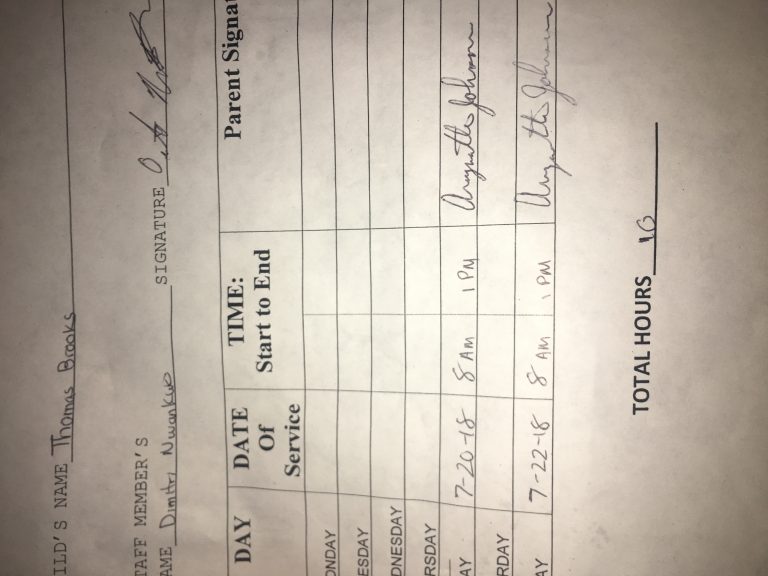 ILD'S NAME Thomas Brooks
TAFF MEMBER'S
AME Dimitri Nwankwo SIGNATURE
DAY DATE Of Service TIME: Start to End Parent Signat
ONDAY
ESDAY
DNESDAY
RSDAY
AY 7-20-18 8 AM 1 PM Johnson
RDAY
AY 7-22-18 8 AM 1 PM Johnson
TOTAL HOURS 10